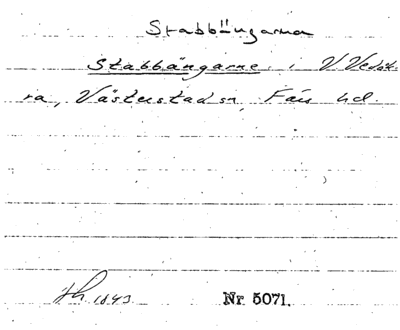 Stabbängarna
Stabbängarne i V Vedst.
ra, Västerstad sn, Färs hd.
1843 Nr. 5071.